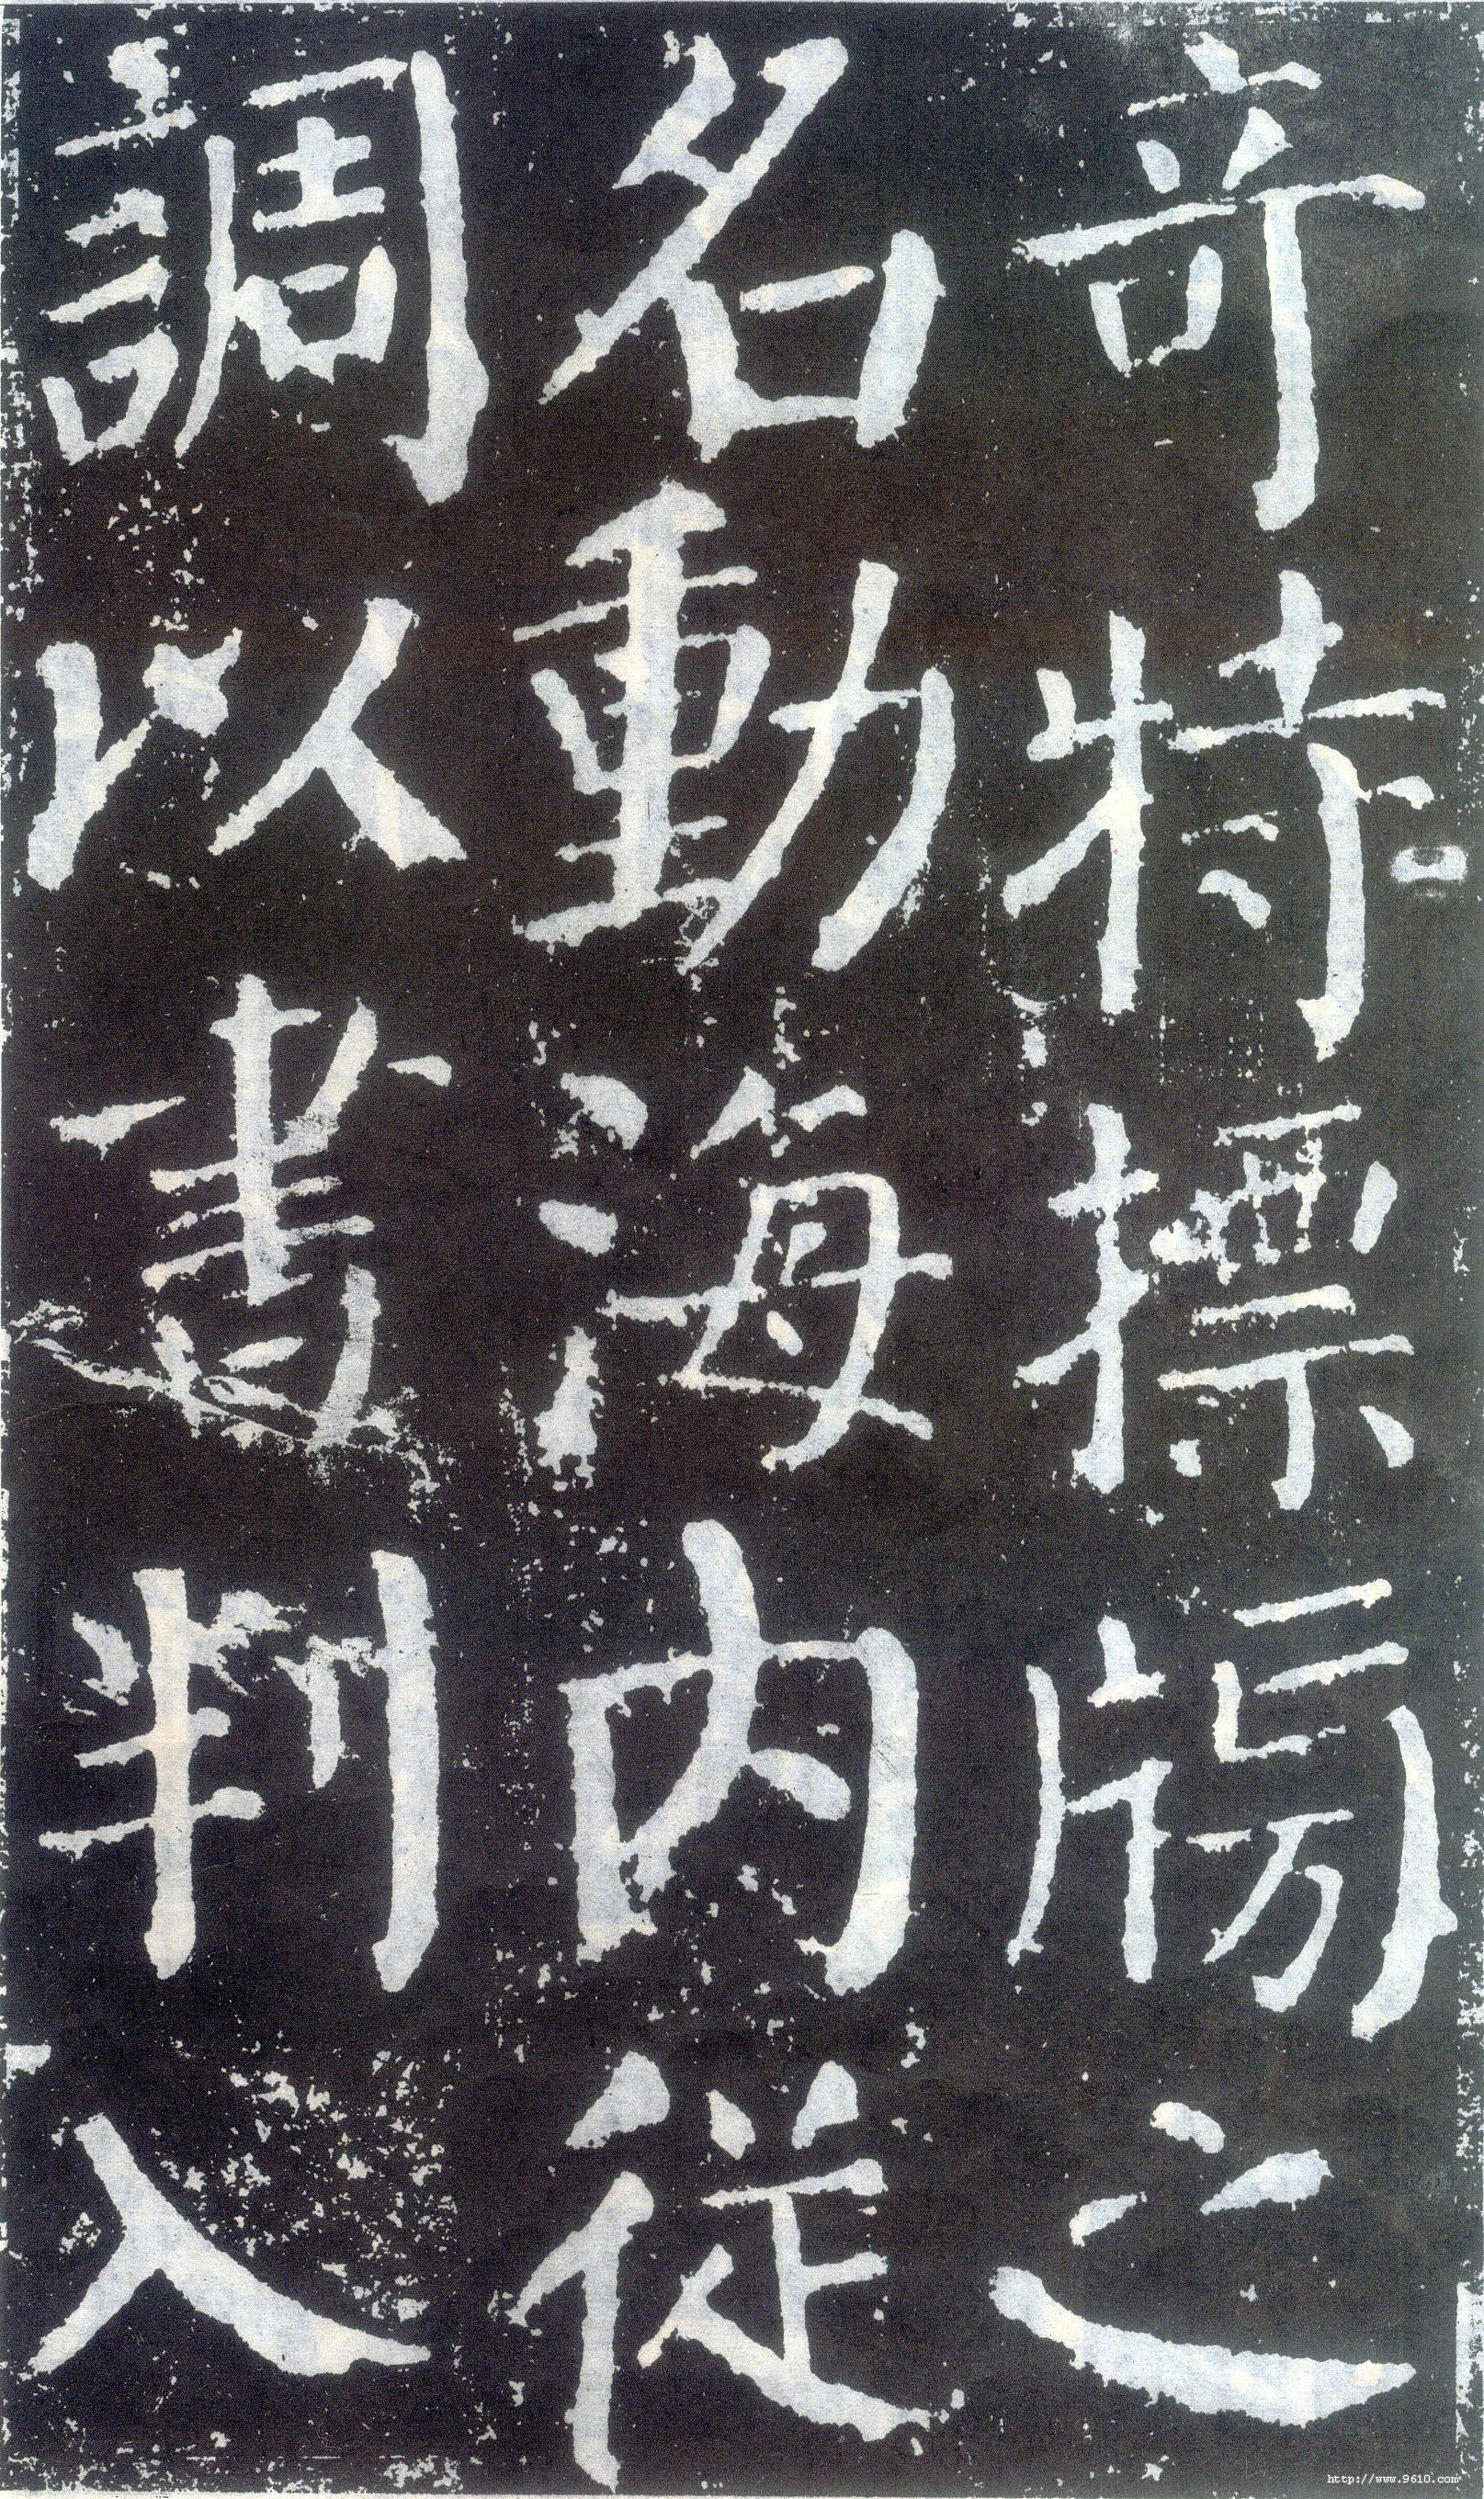 奇特標牓之
名動海內從
調以書判入
http://www.9610.com